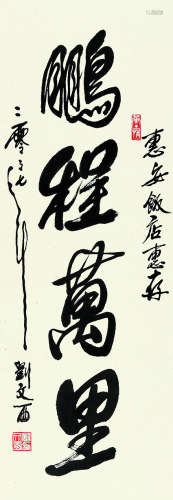 惠安飯店惠存
鵬程萬里
二零
劉文西